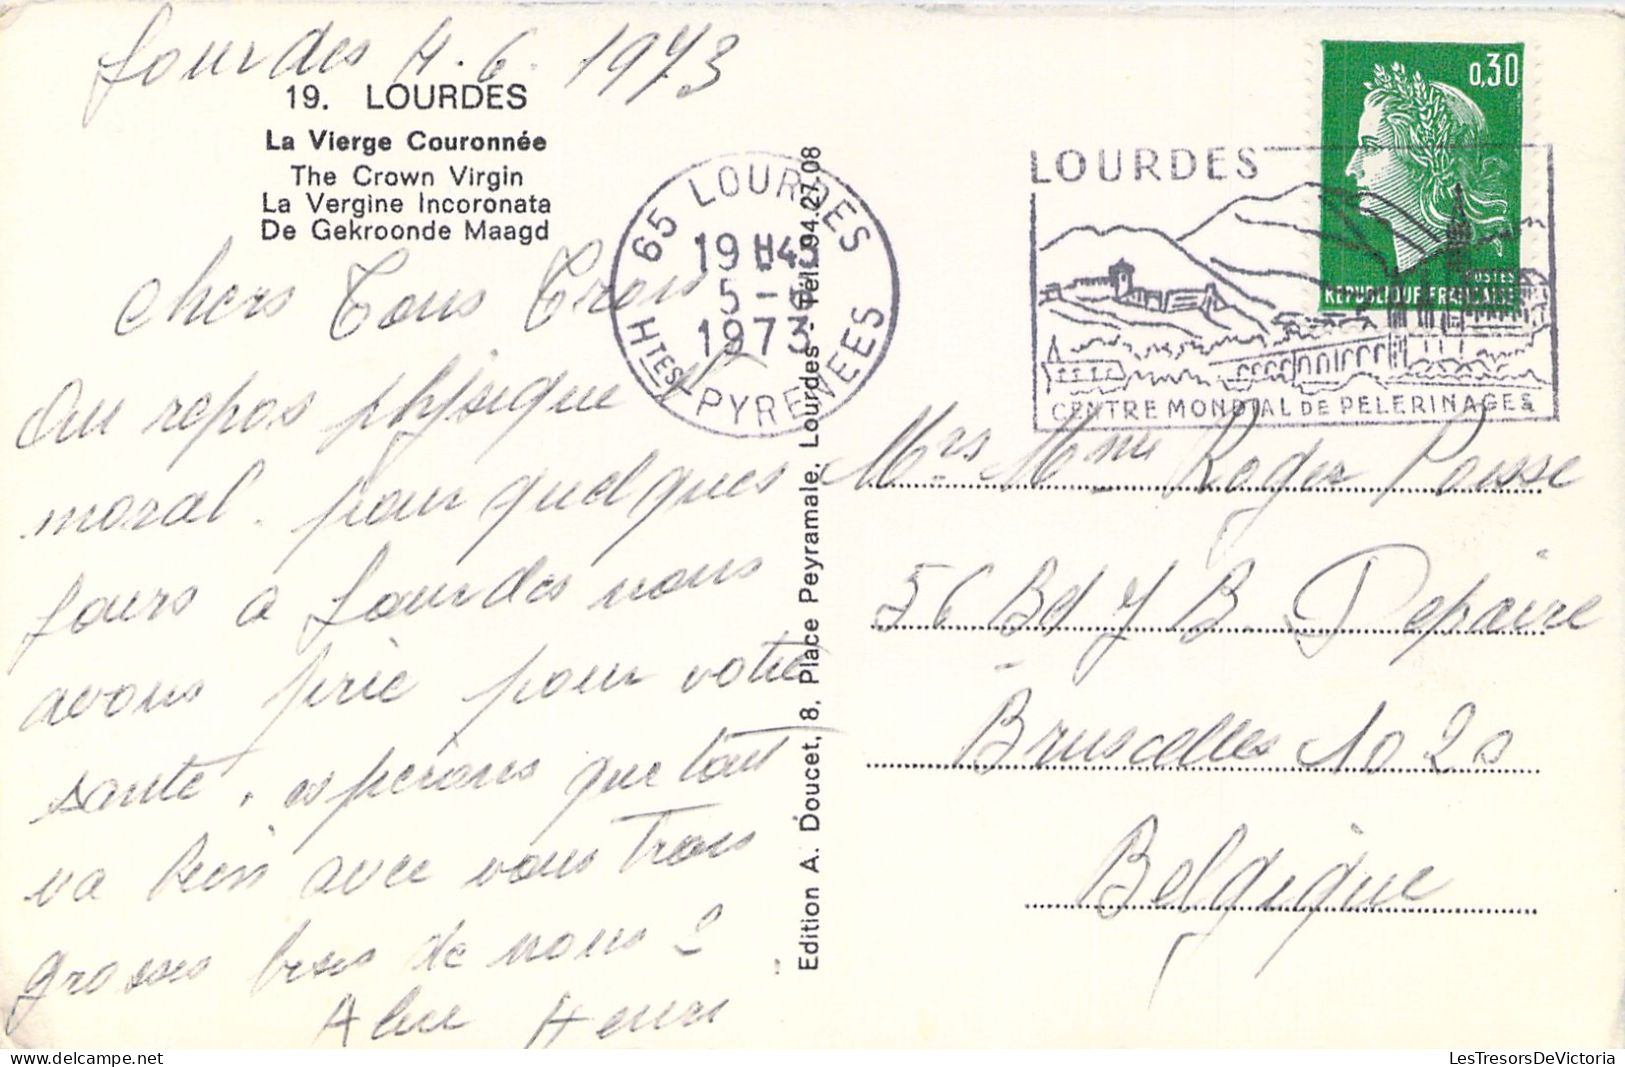 Lourdes 4.6.1973
19. LOURDES
La Vierge Couronnée
The Crown Virgin
La Vergine Incoronata
De Gekroonde Maagd
Chers Tous Trois
Au repos physique et
moral. pour quelques
jours a Lourdes nous
avons prié pour votre
santé, espérons que tout
va bien avec vous trois
grosses bises de nous 2
Henri
Edition A. Doucet, 8, Place Peyramale, Lourdes - Tél. 94.27.08
65 LOURDES
19H45
5-6
1973
HTES PYRENEES
LOURDES
CENTRE MONDIAL DE PELERINAGES
0,30
POSTES
REPUBLIQUE FRANÇAISE
Mrs Mme Roger Poisse
56 Bd J B. Depaire
Bruxelles 1020
Belgique
LesTresorsDeVictoria